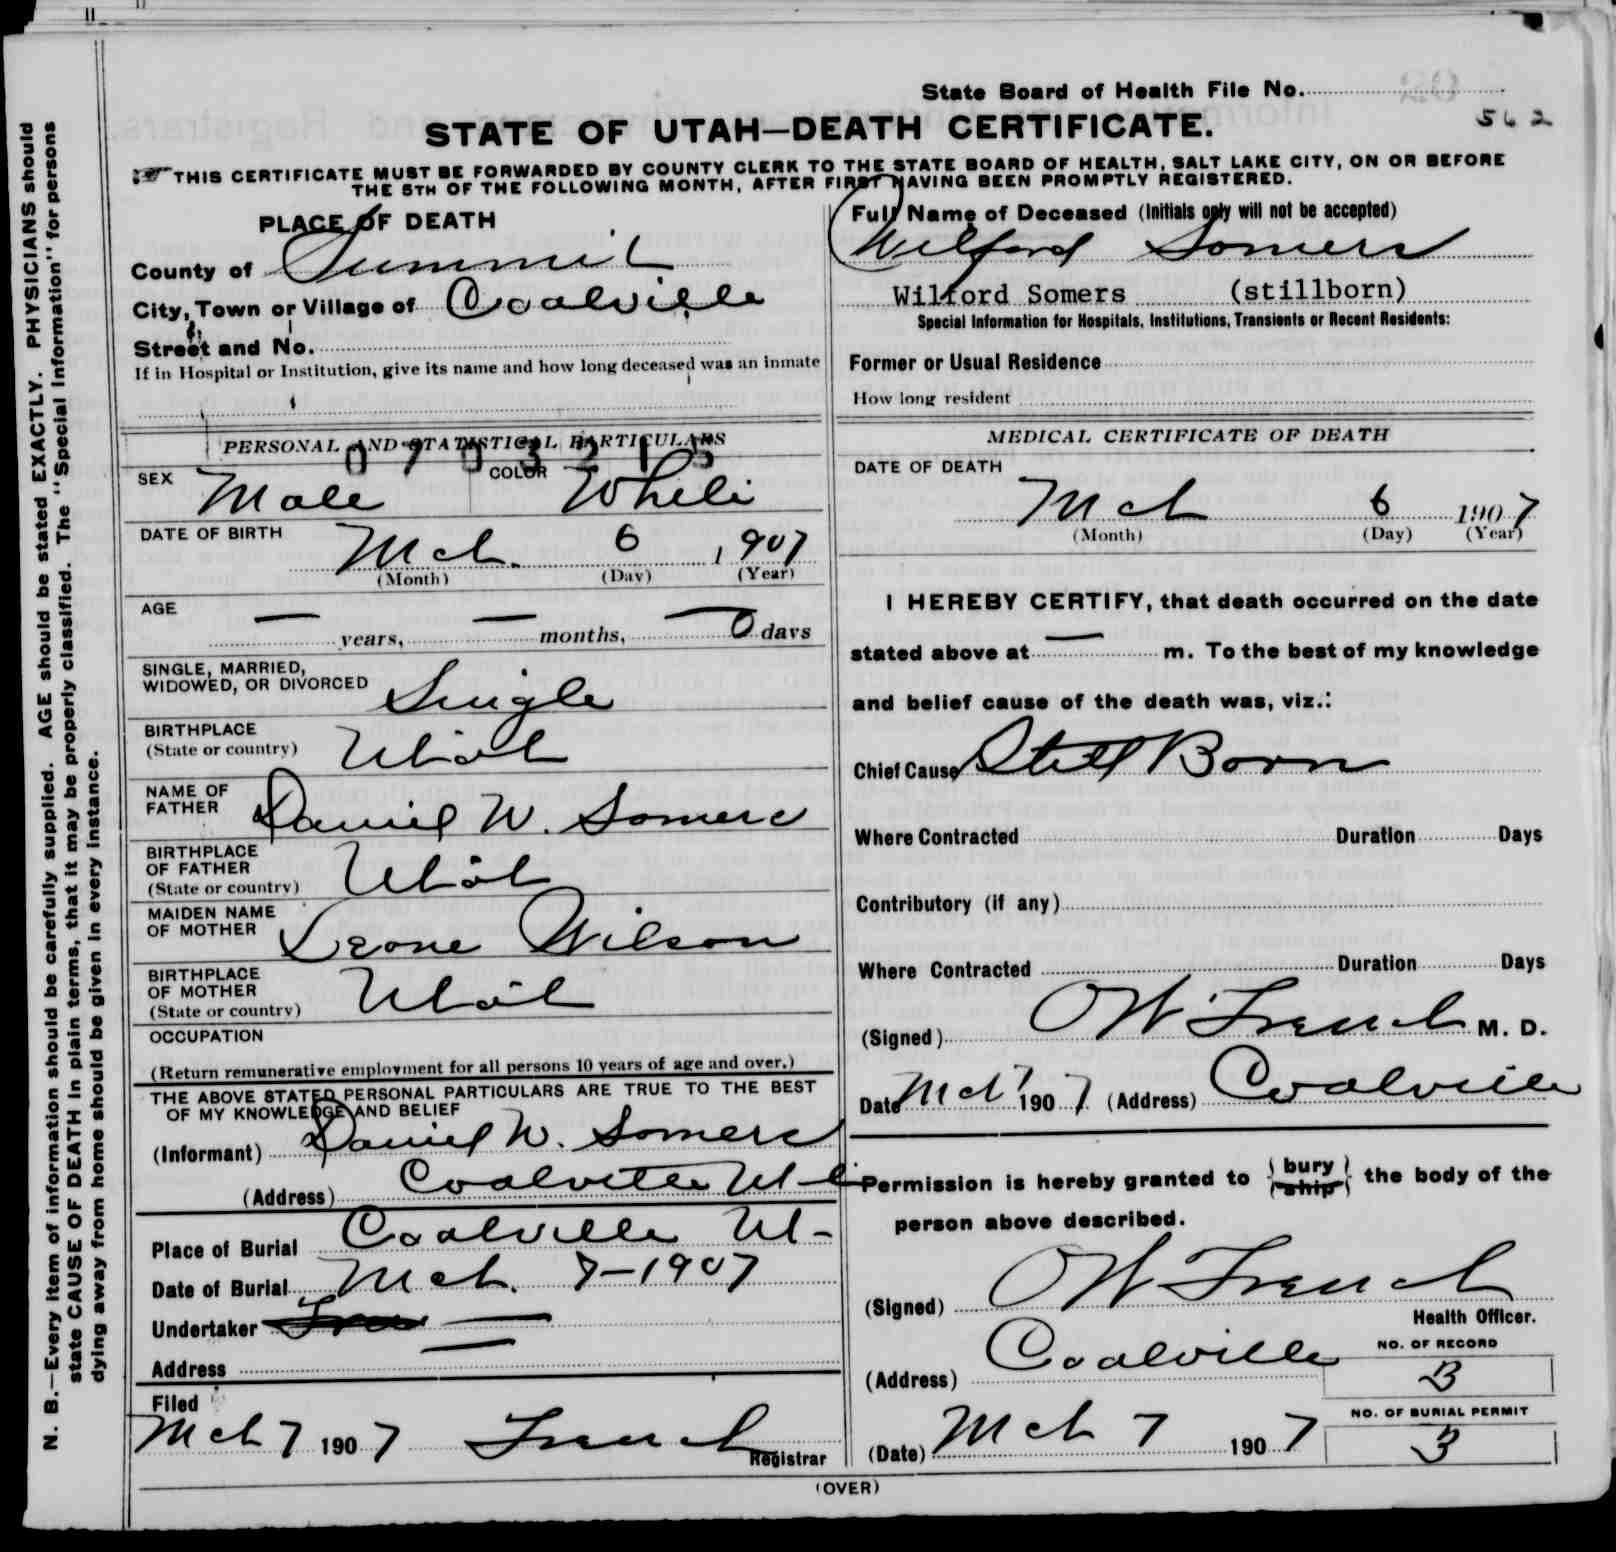 State Board of Health File No.
562
STATE OF UTAH—DEATH CERTIFICATE.
THIS CERTIFICATE MUST BE FORWARDED BY COUNTY CLERK TO THE STATE BOARD OF HEALTH, SALT LAKE CITY, ON OR BEFORE
THE 5TH OF THE FOLLOWING MONTH, AFTER FIRST HAVING BEEN PROMPTLY REGISTERED.
N. B.—Every item of information should be carefully supplied. AGE should be stated EXACTLY. PHYSICIANS should
state CAUSE OF DEATH in plain terms, that it may be properly classified. The "Special Information" for persons
dying away from home should be given in every instance.
PLACE OF DEATH
County of Summit
City, Town or Village of Coalville
Street and No.
If in Hospital or Institution, give its name and how long deceased was an inmate
PERSONAL AND STATISTICAL PARTICULARS
SEX Male COLOR White
DATE OF BIRTH
Mch. 6 1907
(Month) (Day) (Year)
AGE
— years, — months, — 0 days
SINGLE, MARRIED,
WIDOWED, OR DIVORCED Single
BIRTHPLACE
(State or country) Utah
NAME OF
FATHER Daniel W. Somers
BIRTHPLACE
OF FATHER
(State or country) Utah
MAIDEN NAME
OF MOTHER Leone Wilson
BIRTHPLACE
OF MOTHER
(State or country) Utah
OCCUPATION
(Return remunerative employment for all persons 10 years of age and over.)
THE ABOVE STATED PERSONAL PARTICULARS ARE TRUE TO THE BEST
OF MY KNOWLEDGE AND BELIEF
(Informant) Daniel W. Somers
(Address) Coalville Ut
Place of Burial Coalville Ut-
Date of Burial Mch. 7-1907
Undertaker —
Address —
Filed
Mch 7 1907 French
Registrar
Full Name of Deceased (Initials only will not be accepted)
Wilford Somers
Wilford Somers (stillborn)
Special Information for Hospitals, Institutions, Transients or Recent Residents:
Former or Usual Residence
How long resident
MEDICAL CERTIFICATE OF DEATH
DATE OF DEATH
Mch 6 1907
(Month) (Day) (Year)
I HEREBY CERTIFY, that death occurred on the date
stated above at — m. To the best of my knowledge
and belief cause of the death was, viz.:
Chief Cause Still Born
Where Contracted Duration Days
Contributory (if any)
Where Contracted Duration Days
(Signed) OW French M. D.
Date Mch 7 1907 (Address) Coalville
Permission is hereby granted to (bury ship) the body of the
person above described.
(Signed) OW French
Health Officer.
NO. OF RECORD
(Address) Coalville 3
NO. OF BURIAL PERMIT
(Date) Mch 7 1907 3
(OVER)